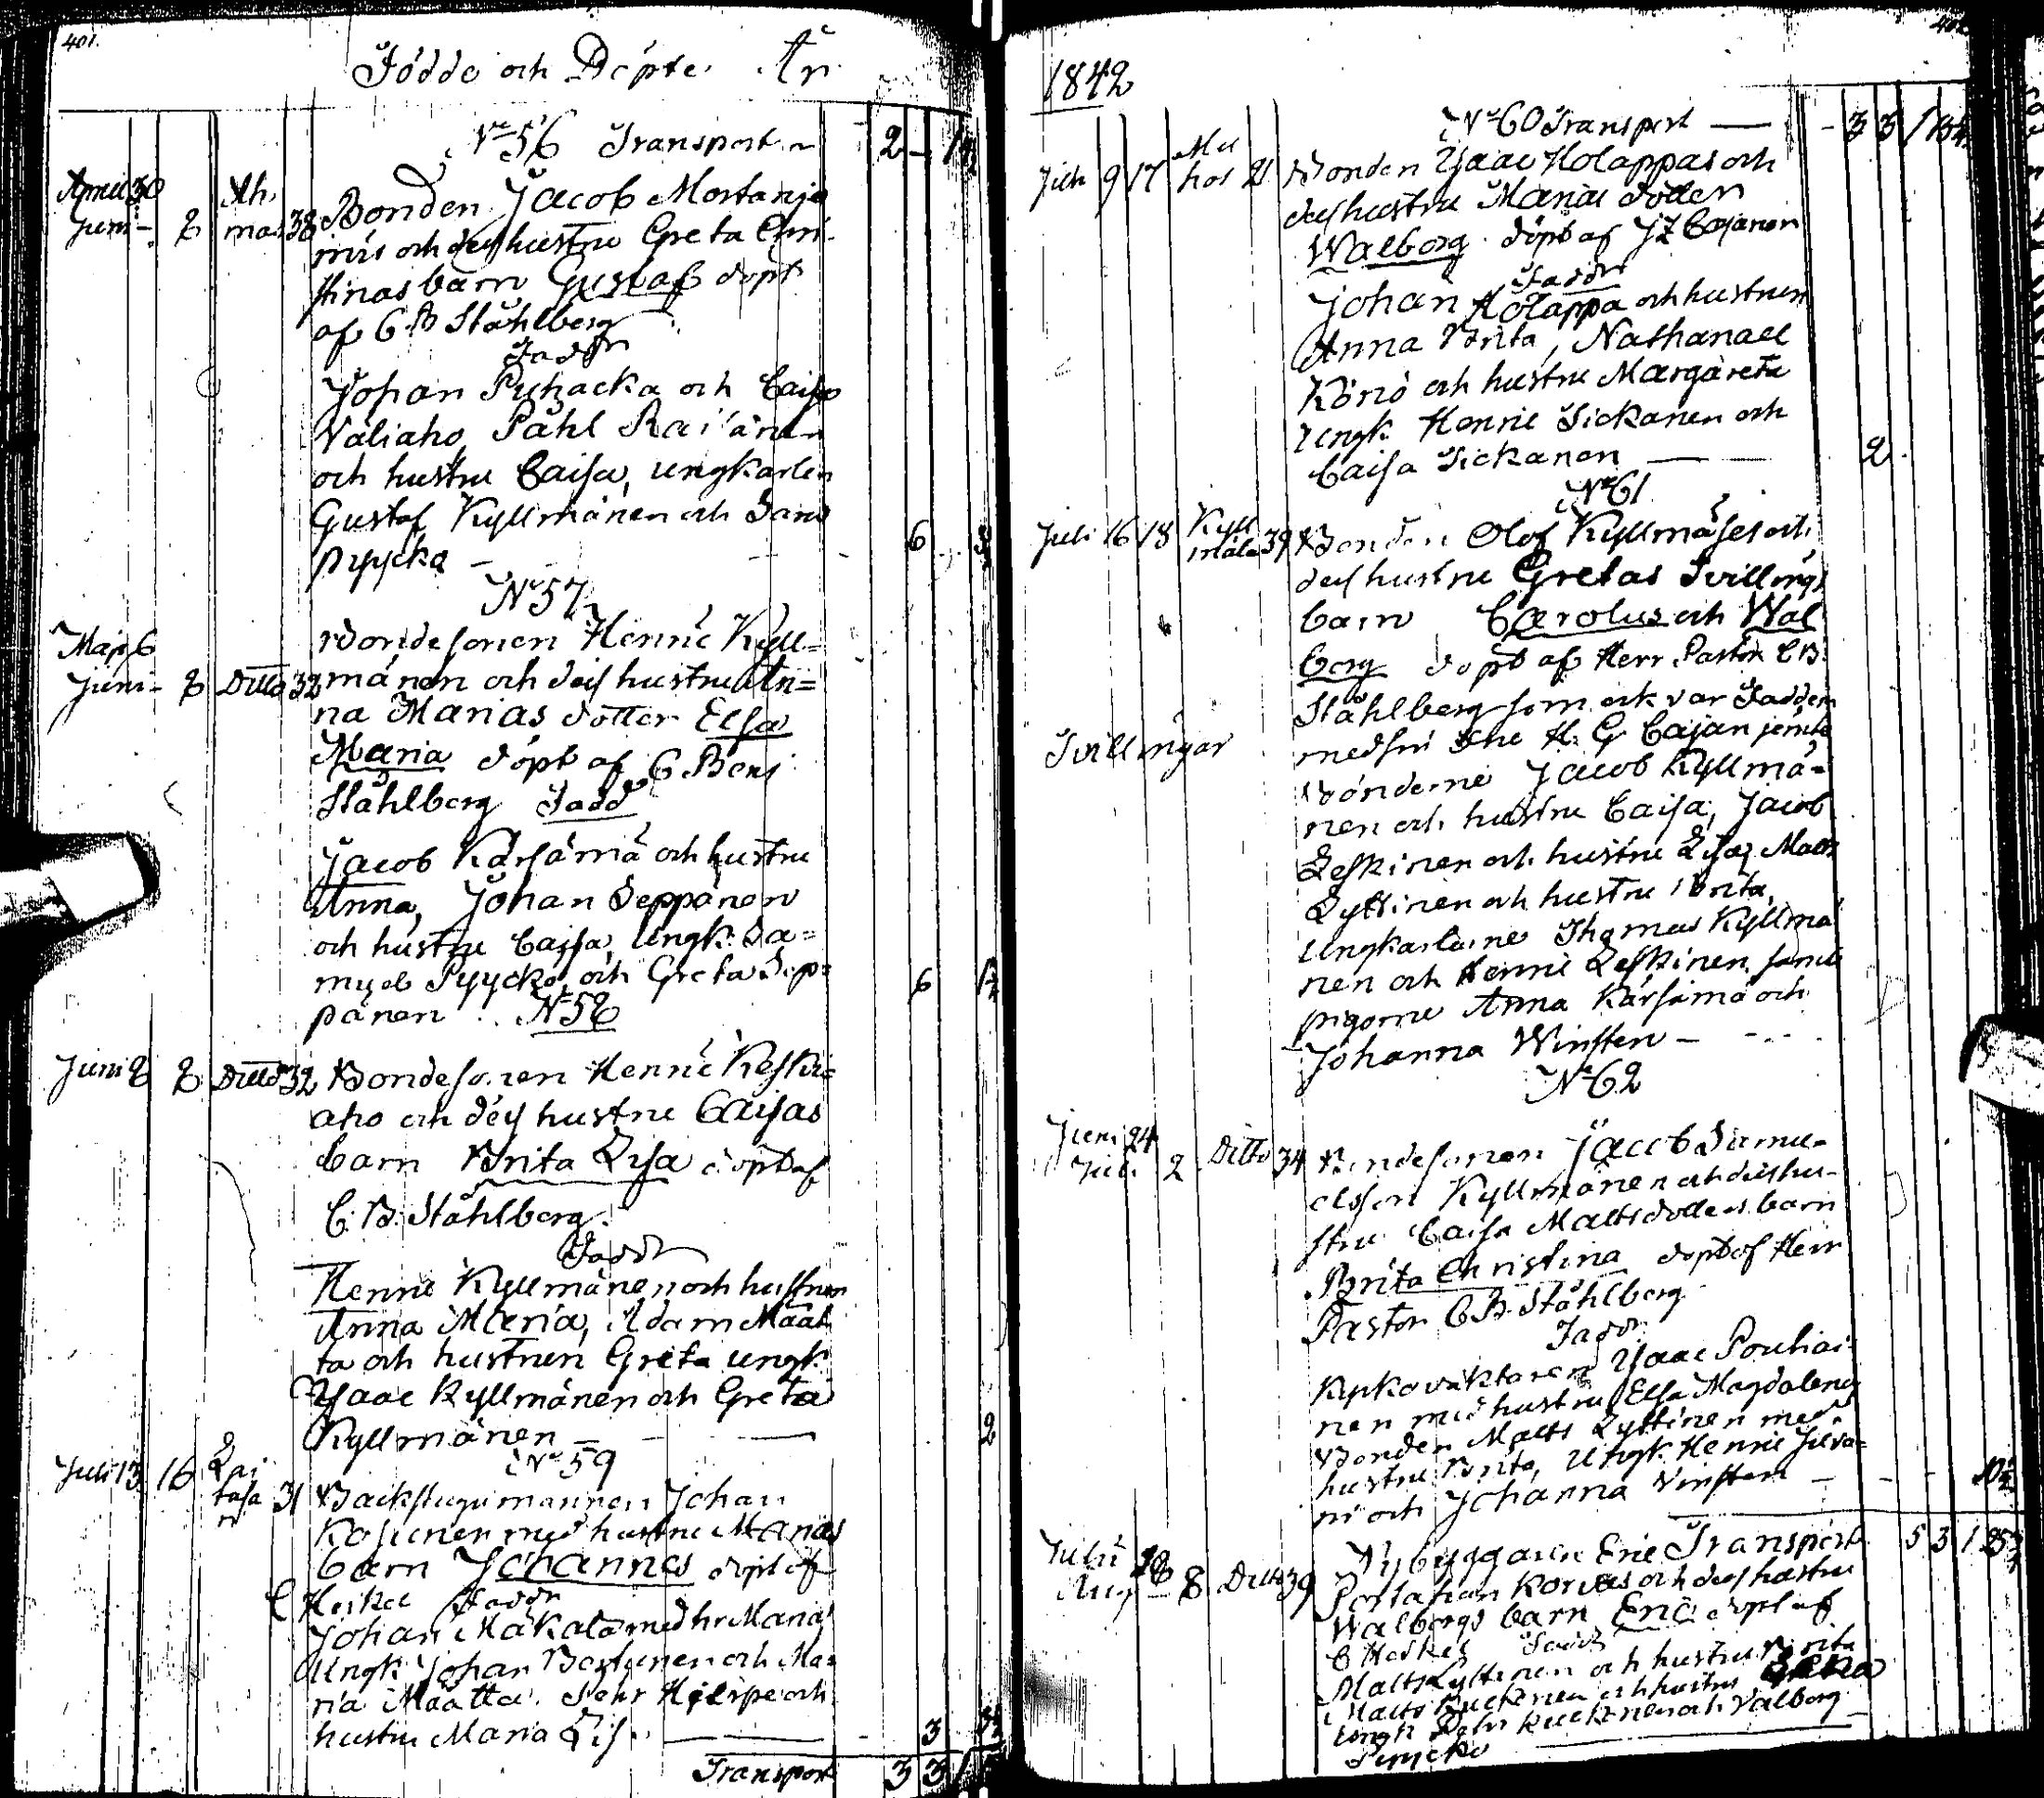 401.
Födde och Döpte År
No 56 Transport 2 –
April 30
Juni – 8 Ah
mas 38
Bonden Jacob Mortanje
och dess hustru Greta Chri-
stinas barn Gustaf döpt
af C B Ståhlberg
Faddr
Johan Puhacka och Caisa
Väliaho, Påhl Raiänen
och hustru Caisa, ungkarlen
Gustaf Kyllmänen och
Pyycko – 6
No 57
Maji 6
Juni – 8 Ditto 32
Bondesonen Henric Kyll=
mänen och dess hustru An=
na Marias dotter Elsa
Maria döpt af C Benj
Ståhlberg Fadd
Jacob Kärsämä och hustru
Anna, Johan Seppänen
och hustru Caisa, Ungk. Sa=
muel Pyycko, och Greta Sep=
pänen 6
No 58
Juni 8 8 Ditto 32
Bondesonen Henric Keski=
aho och dess hustru Caisas
barn Brita Lisa döpt af
C. B. Ståhlberg.
Faddr
Henric Kyllmänen och hustrun
Anna Maria, Adam Määt
ta och hustrun Greta ungk.
Isaac Kyllmänen och Greta
Kyllmänen – 2
No 59
Juli 13 16 31
Backstugumannen Johan
Kosunen med hustru Marias
barn Johannes döpt af
C Heikel Faddr
Johan Mäkälä med hr Maria
Ungk Johan och Ma=
ria Määtta. Pehr och
hustru Maria Lis. – 3
Transport 3 3 1
1842
No 60 Transport – 3 3 1
Juli 9 17 hos 21
Bonden Isaac Holappas och
dess hustru Marias dotter
Walborg döpt af J Z Cajanen
Faddr
Johan Holappa och hustrun
Anna Brita, Nathanael
Körjö och hustru Margareta
Ungk. Henric Sickanen och
Caisa Sickanen – 2
No 61
Juli 16 18 Kyll
mälä 39
Bonden Olof Kyllmäses och
dess hustru Gretas Tvillings
barn Carolus och Wal
borg döpt af Herr Pastor C B.
Ståhlberg som ock var Fadder
med H. G Cajan jemte
Bönderne Jacob Kyllmä-
nen och hustru Caisa, Jacob
Leskinen och hustru Lisa, Matts
Lyttinen och hustru Brita,
Ungkarlarne Thomas Kyllmä
nen och Henric Leskinen samt
pigorne Anna Kärsämä och
Johanna Winsten –
Tvillingar
No 62
Juni 24
Juli 2 Ditto 34
Bondesonen Jacob Samu-
elsson Kyllmänen och dess hu-
stru Caisa Mattsdotters barn
Brita Christina döpt af Herr
Pastor C B. Ståhlberg
Faddr
Kyrkoväktaren Isaac Pouhiai-
nen med hustru Elsa Magdalena
Bonden Matts Lyttinen med
hustru Brita, Ungk. Henric
och Johanna Vinsten –
Transport 5 3 1
Julii 18
Aug – 8 Ditto 39
Nybyggaren Eric
och dess hustru
Walborgs barn Eric döpt af
C Heikel Faddr
Matts Lyttinen och hustru Brita
Matts och hustru
Ungk Pehr och Valborg
Pyycko